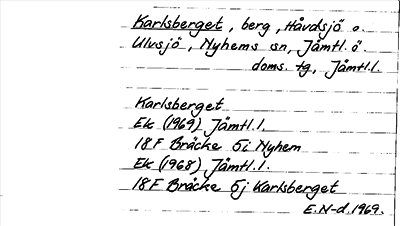 Karlsberget, berg, Håvdsjö o.
Ulvsjö, Nyhems sn, Jämtl. ö.
doms. tg, Jämtl.l.
Karlsberget
Ek (1969) Jämtl.l.
18F Bräcke 5i Nyhem
Ek (1968) Jämtl.l.
18F Bräcke 5j Karlsberget
E.N-d.1969.